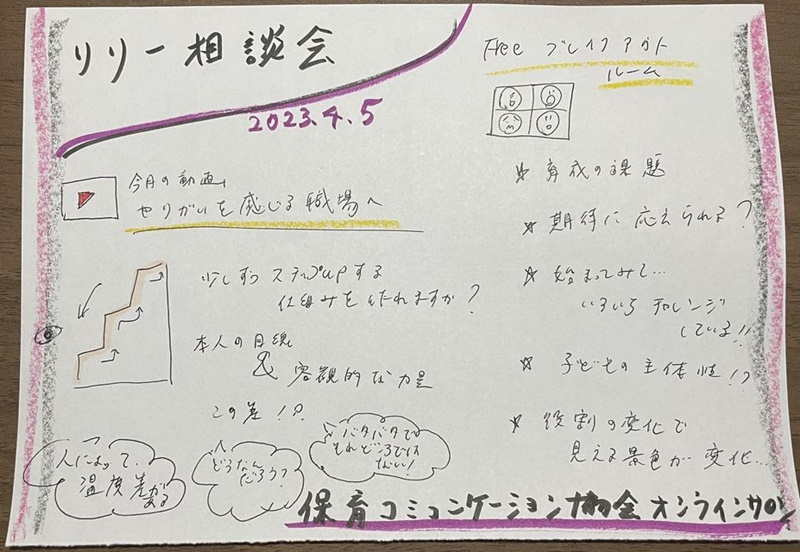 リリー相談会
2023.4.5
今月の動画
やりがいを感じる職場へ
少しずつステップupする
仕組みを作れますか?
本人の目線
& 客観的な力量
この差!?
人によって、
温度差がある
どうなん
だろう?
バタバタで
それどころでは
ない!
Free ブレイクアウト
ルーム
☆ 育成の課題
☆ 期待に応えられる?
☆ 始まってみて…
いろいろチャレンジ
している!!
☆ 子どもの主体性!?
☆ 役割の変化で
見える景色が変化…
保育コミュニケーション協会オンラインサロン